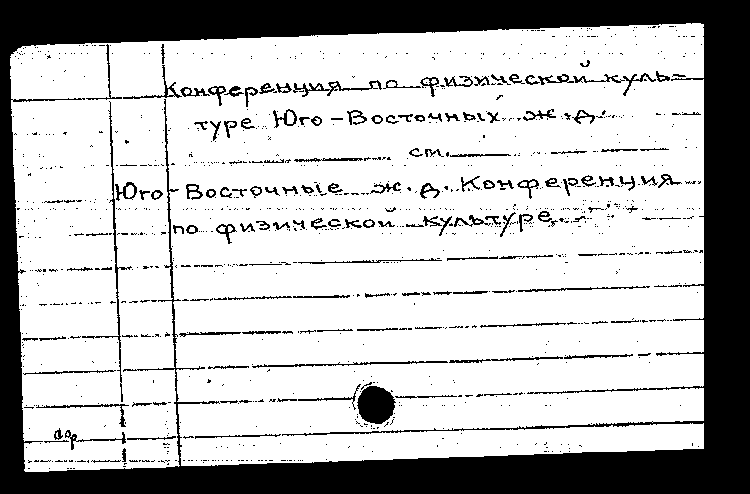 Конференция по физической куль-
туре Юго-Восточных ж.д.
см.
Юго-Восточные ж.д. Конференция
по физической культуре.